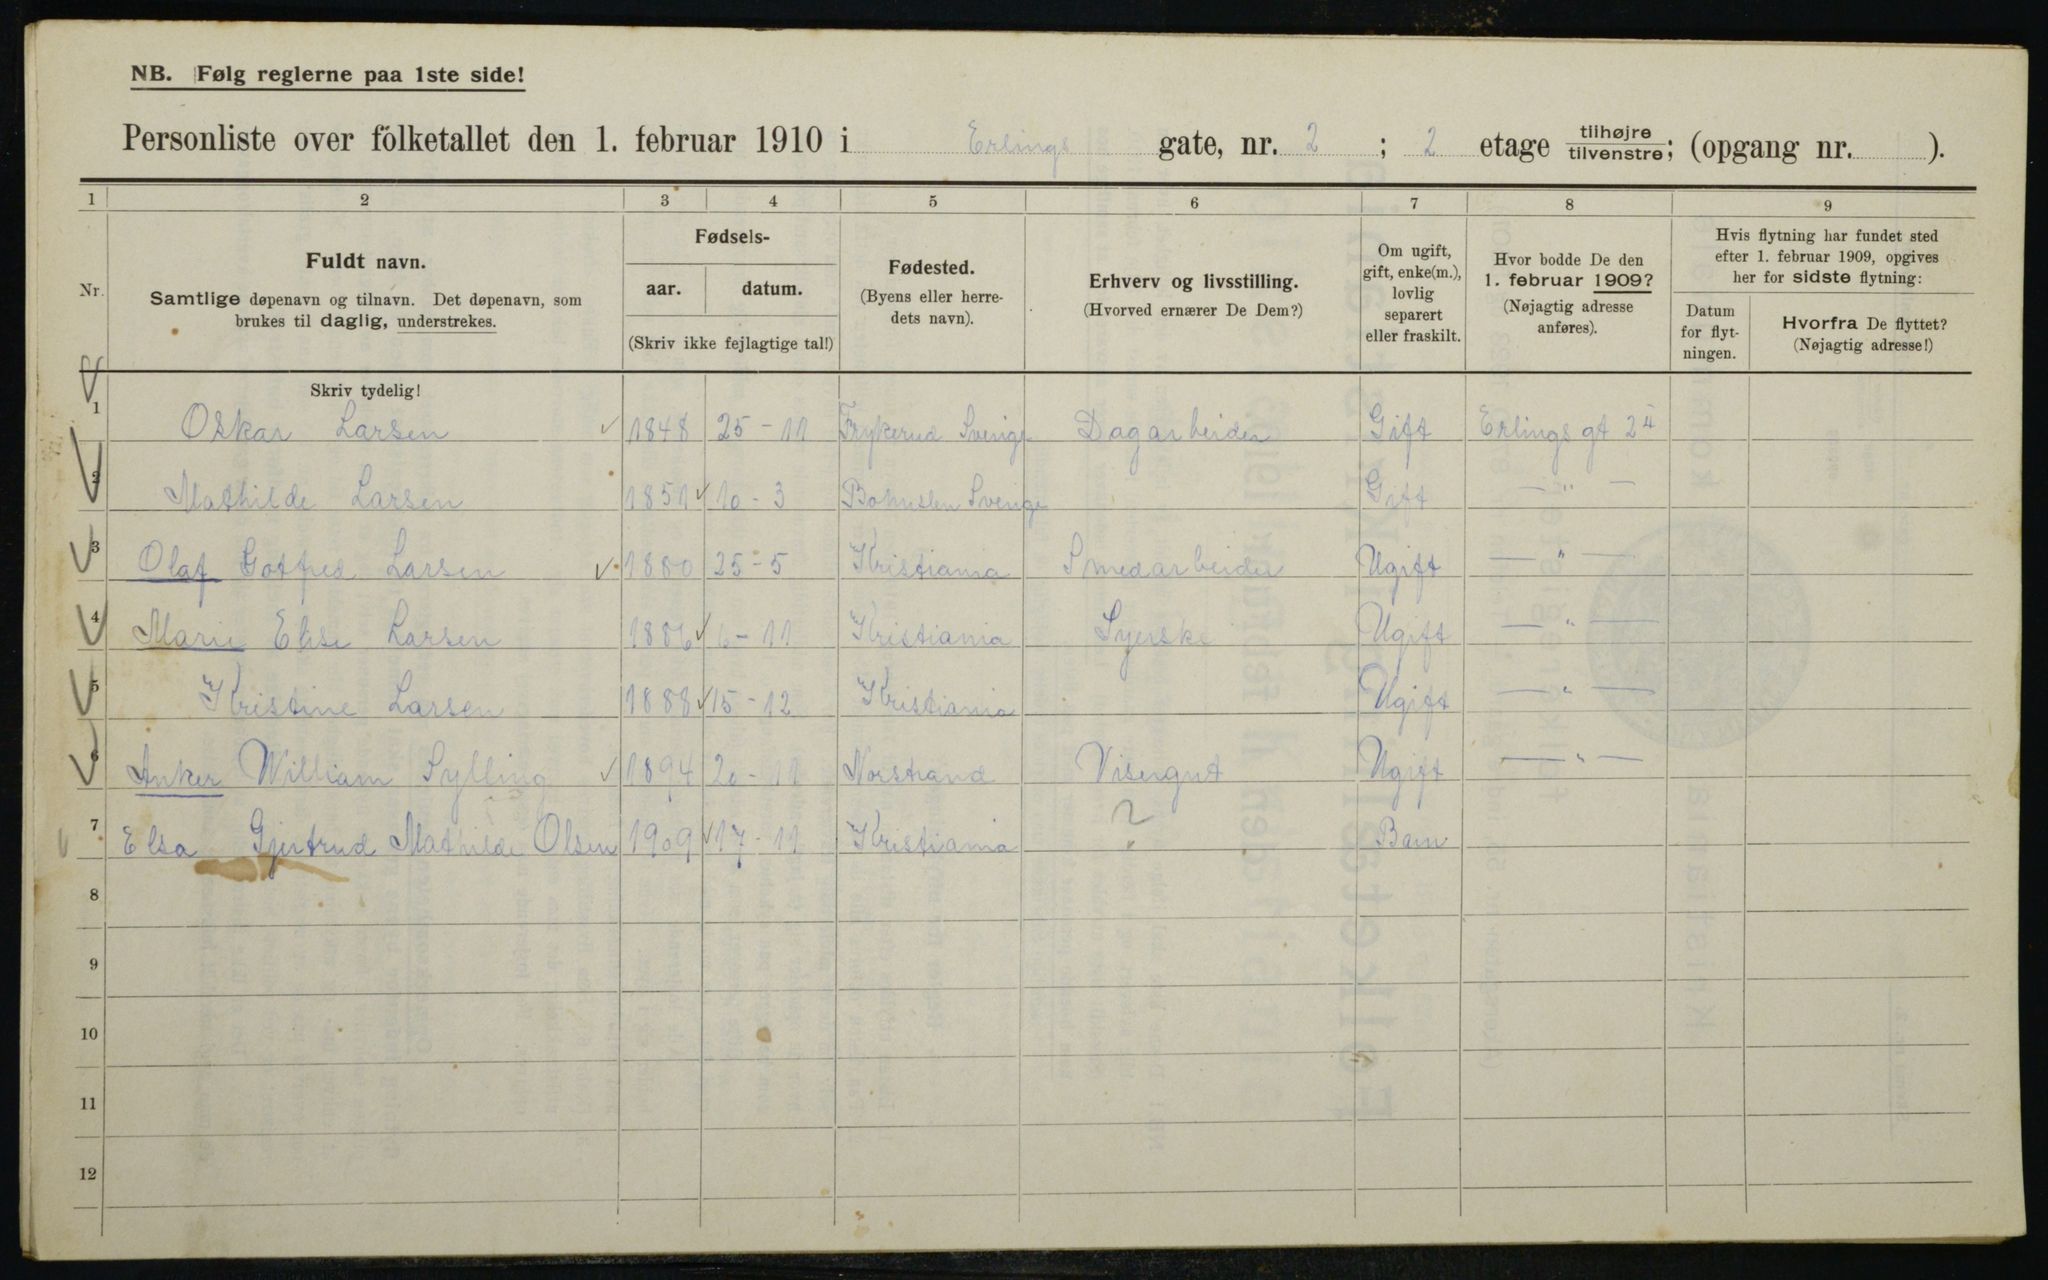 NB. Følg reglerne paa 1ste side!
Personliste over folketallet den 1. februar 1910 i Erlings gate, nr. 2 ; 2 etage tilhøjre/tilvenstre; (opgang nr. ).
1 2 3 4 5 6 7 8 9
Nr. Fuldt navn. Samtlige døpenavn og tilnavn. Det døpenavn, som brukes til daglig, understrekes.
Fødsels- aar. datum. (Skriv ikke fejlagtige tal!)
Fødested. (Byens eller herredets navn).
Erhverv og livsstilling. (Hvorved ernærer De Dem?)
Om ugift, gift, enke(m.), lovlig separert eller fraskilt.
Hvor bodde De den 1. februar 1909? (Nøjagtig adresse anføres).
Hvis flytning har fundet sted efter 1. februar 1909, opgives her for sidste flytning:
Datum for flytningen. Hvorfra De flyttet? (Nøjagtig adresse!)
Skriv tydelig!
1 Oskar Larsen 1848 25-11 Frykerud Sverige Dagarbeider Gift Erlings gt 2 II
2 Mathilde Larsen 1851 10-3 Bohuslen Sverige Gift — " —
3 Olaf Gotfred Larsen 1880 25-5 Kristiania Smedarbeider Ugift — " —
4 Marie Elise Larsen 1886 6-11 Kristiania Syerske Ugift — " —
5 Kristine Larsen 1888 15-12 Kristiania Ugift — " —
6 Anker William Sylling 1894 20-11 Norstrand Visergut Ugift — " —
7 Elsa Gjertrud Mathilde Olsen 1909 17-11 Kristiania " Barn
8
9
10
11
12